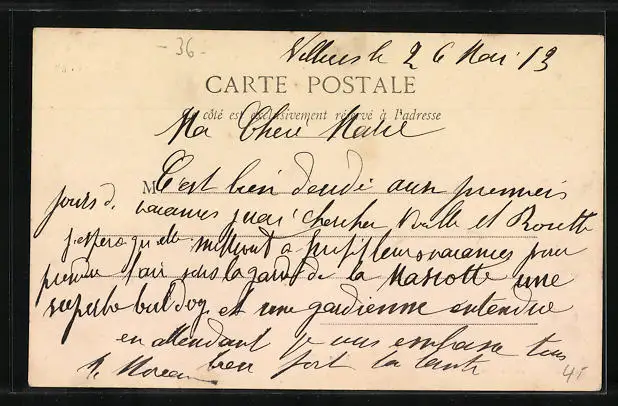 - 36 -
Villers le 26 Mai 13
CARTE POSTALE
côté est exclusivement réservé à l'adresse
Ma Chère Marie
M C'est bien aux premiers
jours d. vacances j'irai chercher et
j'espère qu'elle à vacances pour
prendre l'air sous la garde de la Mascotte une
superbe buldog et une gardienne entendue
en attendant je vous embrasse tous
bien fort la tante
Moreau